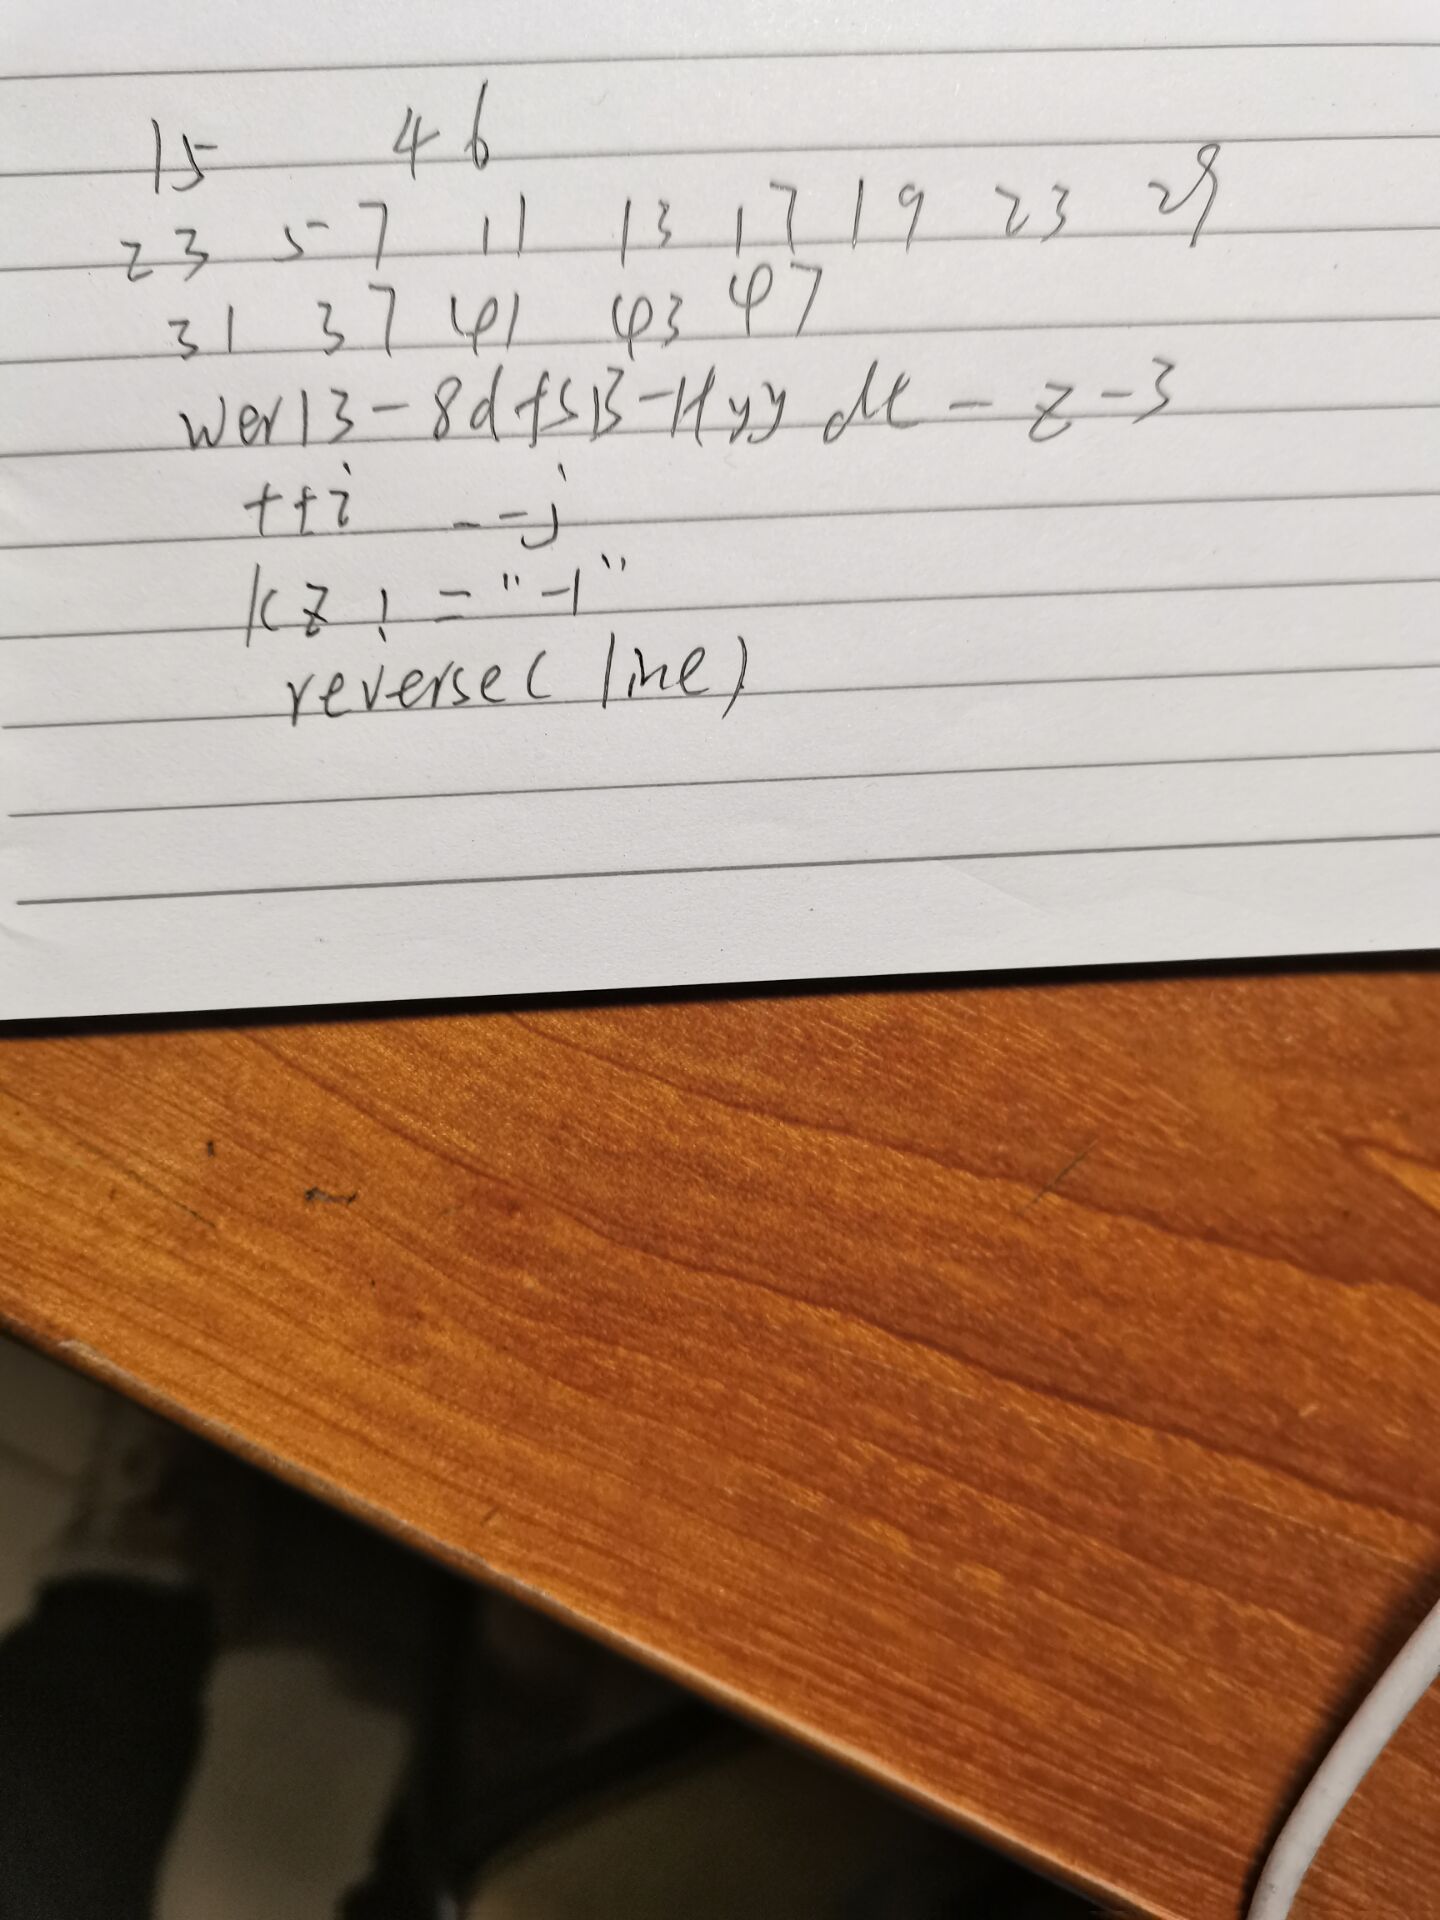 15 46
2 3 5 7 11 13 17 19 23 29
31 37 41 43 47
wer13-8dfsB-Hyy dt - z-3
++i --j
kz != "-1"
reverse( line)